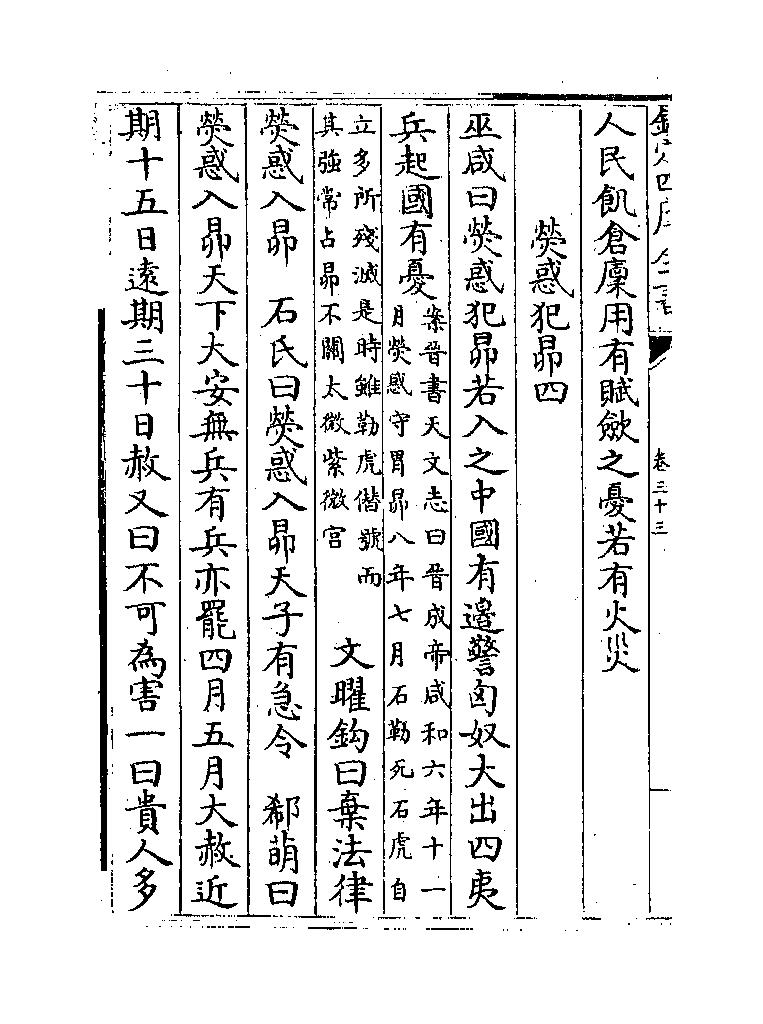 欽定四庫全書
卷三十三
人民飢倉廩用有賦斂之憂若有火災
熒惑犯昴四
巫咸曰熒惑犯昴若入之中國有邉警匈奴大出四夷
兵起國有憂案晉書天文志曰晉成帝咸和六年十一
月熒惑守胃昴八年七月石勒死石虎自
立多所殘滅是時雖勒虎僭號而
其強常占昴不關太微紫微宮　文曜鈎曰棄法律
熒惑入昴　石氏曰熒惑入昴天子有急令　郗萌曰
熒惑入昴天下大安無兵有兵亦罷四月五月大赦近
期十五日遠期三十日赦又曰不可為害一曰貴人多